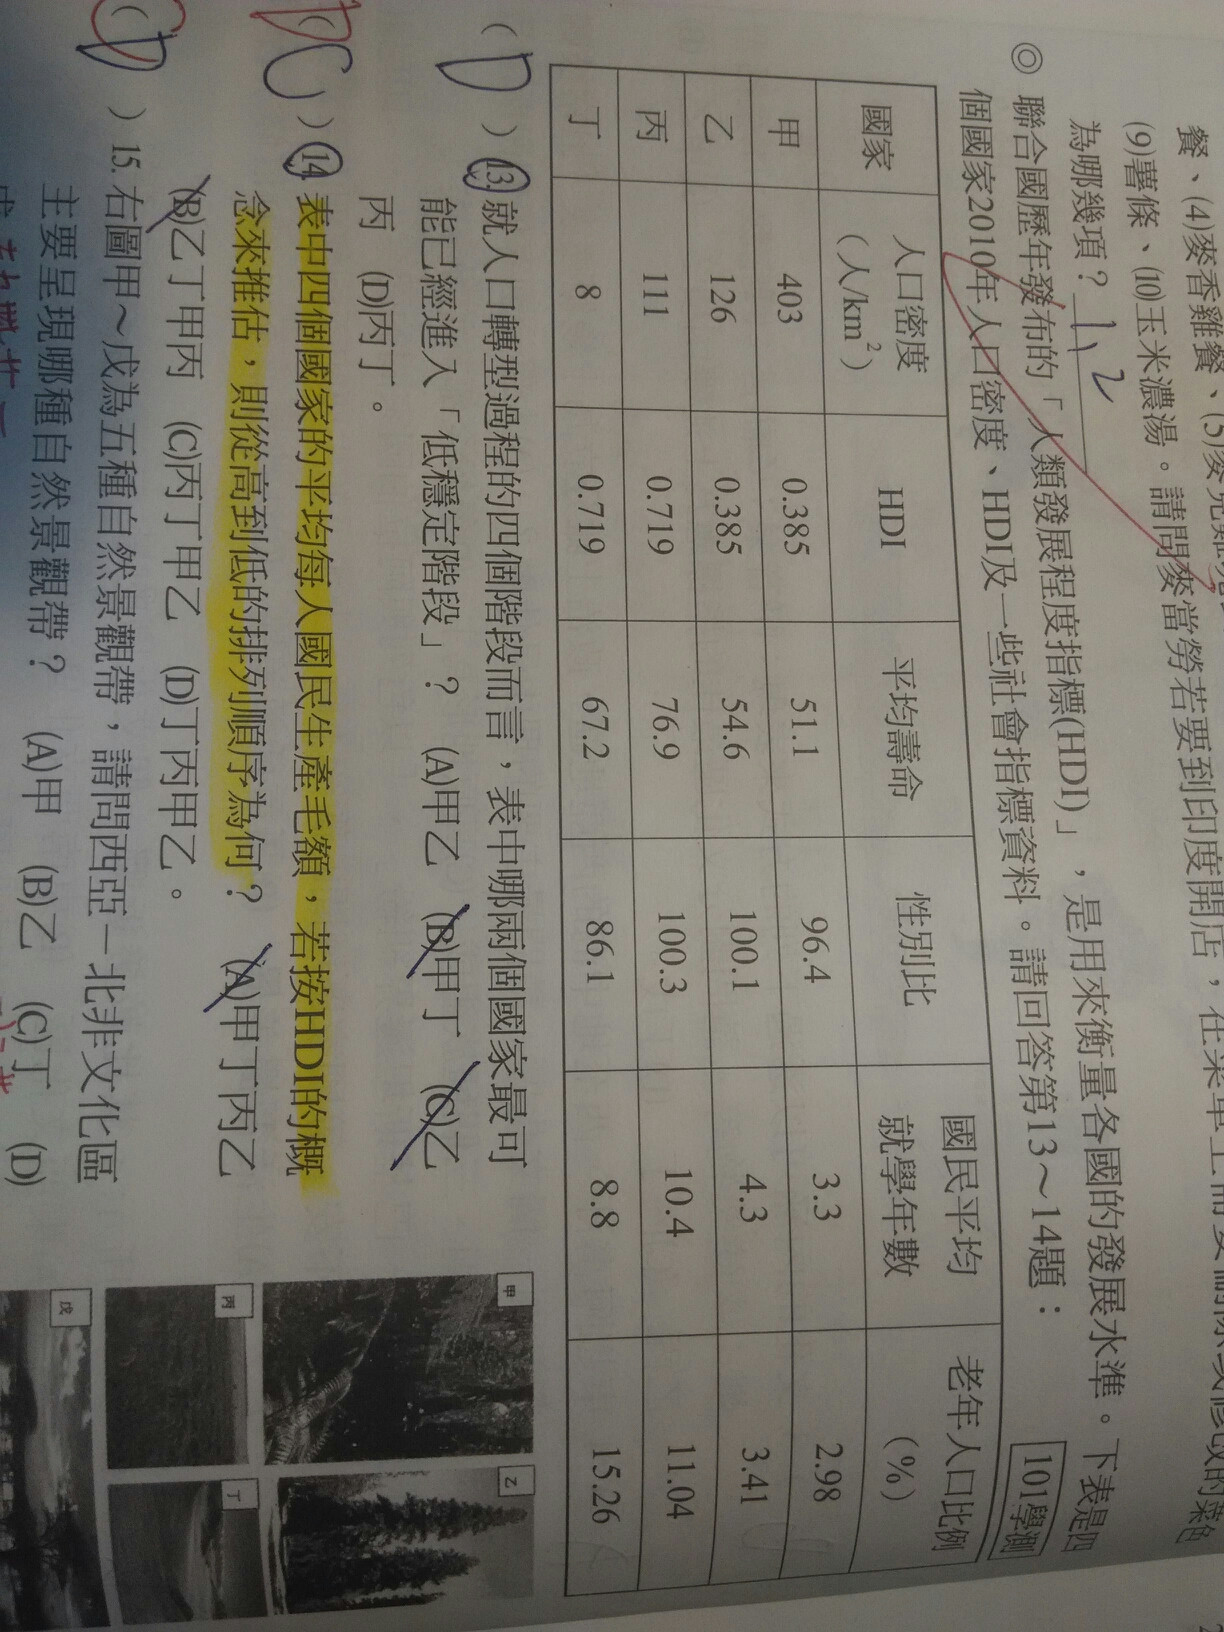 餐、(4)麥香雞餐、(5)麥克
(9)薯條、(10)玉米濃湯。請問麥當勞若要到印度開店，在菜單上需要
為哪幾項？1、2
◎ 聯合國歷年發布的「人類發展程度指標(HDI)」，是用來衡量各國的發展水準。下表是四
個國家2010年人口密度、HDI及一些社會指標資料。請回答第13～14題： 101學測
國家 人口密度(人/km²) HDI 平均壽命 性別比 國民平均就學年數 老年人口比例(%)
甲 403 0.385 51.1 96.4 3.3 2.98
乙 126 0.385 54.6 100.1 4.3 3.41
丙 111 0.719 76.9 100.3 10.4 11.04
丁 8 0.719 67.2 86.1 8.8 15.26
( D ) 13. 就人口轉型過程的四個階段而言，表中哪兩個國家最可
能已經進入「低穩定階段」？ (A)甲乙 (B)甲丁 (C)乙
丙 (D)丙丁。
( C ) 14. 表中四個國家的平均每人國民生產毛額，若按HDI的概
念來推估，則從高到低的排列順序為何？ (A)甲丁丙乙
(B)乙丁甲丙 (C)丙丁甲乙 (D)丁丙甲乙。
( D ) 15. 右圖甲～戊為五種自然景觀帶，請問西亞－北非文化區
主要呈現哪種自然景觀帶？ (A)甲 (B)乙 (C)丁 (D)
甲
乙
丙
丁
戊